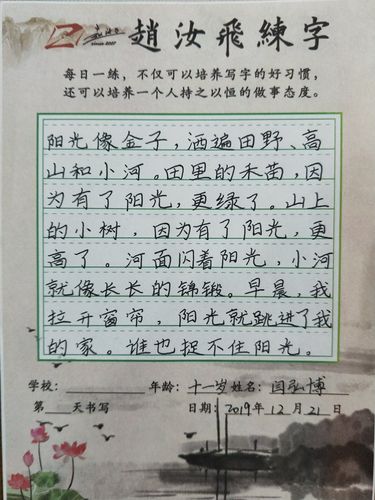 since 2007
趙汝飛練字
每日一练，不仅可以培养写字的好习惯，
还可以培养一个人持之以恒的做事态度。
阳光像金子，洒遍田野、高
山和小河。田里的禾苗，因
为有了阳光，更绿了。山上
的小树，因为有了阳光，更
高了。河面闪着阳光，小河
就像长长的锦缎。早晨，我
拉开窗帘，阳光就跳进了我
的家。谁也捉不住阳光。
学校：________ 年龄：十一岁 姓名：闫弘博
第____天书写 日期：2019年12月21日